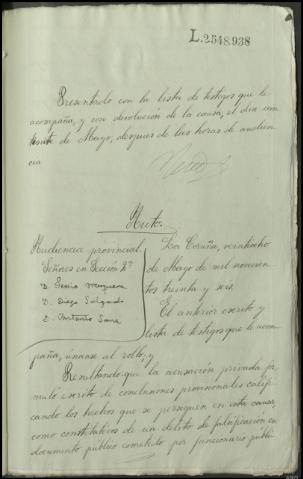 L.2548.938
Presentado con la lista de testigos que le
acompaña, y con devolución de la causa, el día
de Mayo, despues de las horas de audien
cia
Auto.
Audiencia provincial
Señores en Sección 2ª
D. Jesús
D. Diego Salgado
D. Antonio
La Coruña, veintiocho
de Mayo de mil novecien
tos treinta y seis.
El anterior escrito y
lista de testigos que le acom
paña, únanse al rollo; y
Resultando que la acusación privada for
muló escrito de conclusiones provisionales califi
cando los hechos que se persiguen en esta causa,
como constitutivos de un delito de falsificación en
documento público cometido por funcionario públi